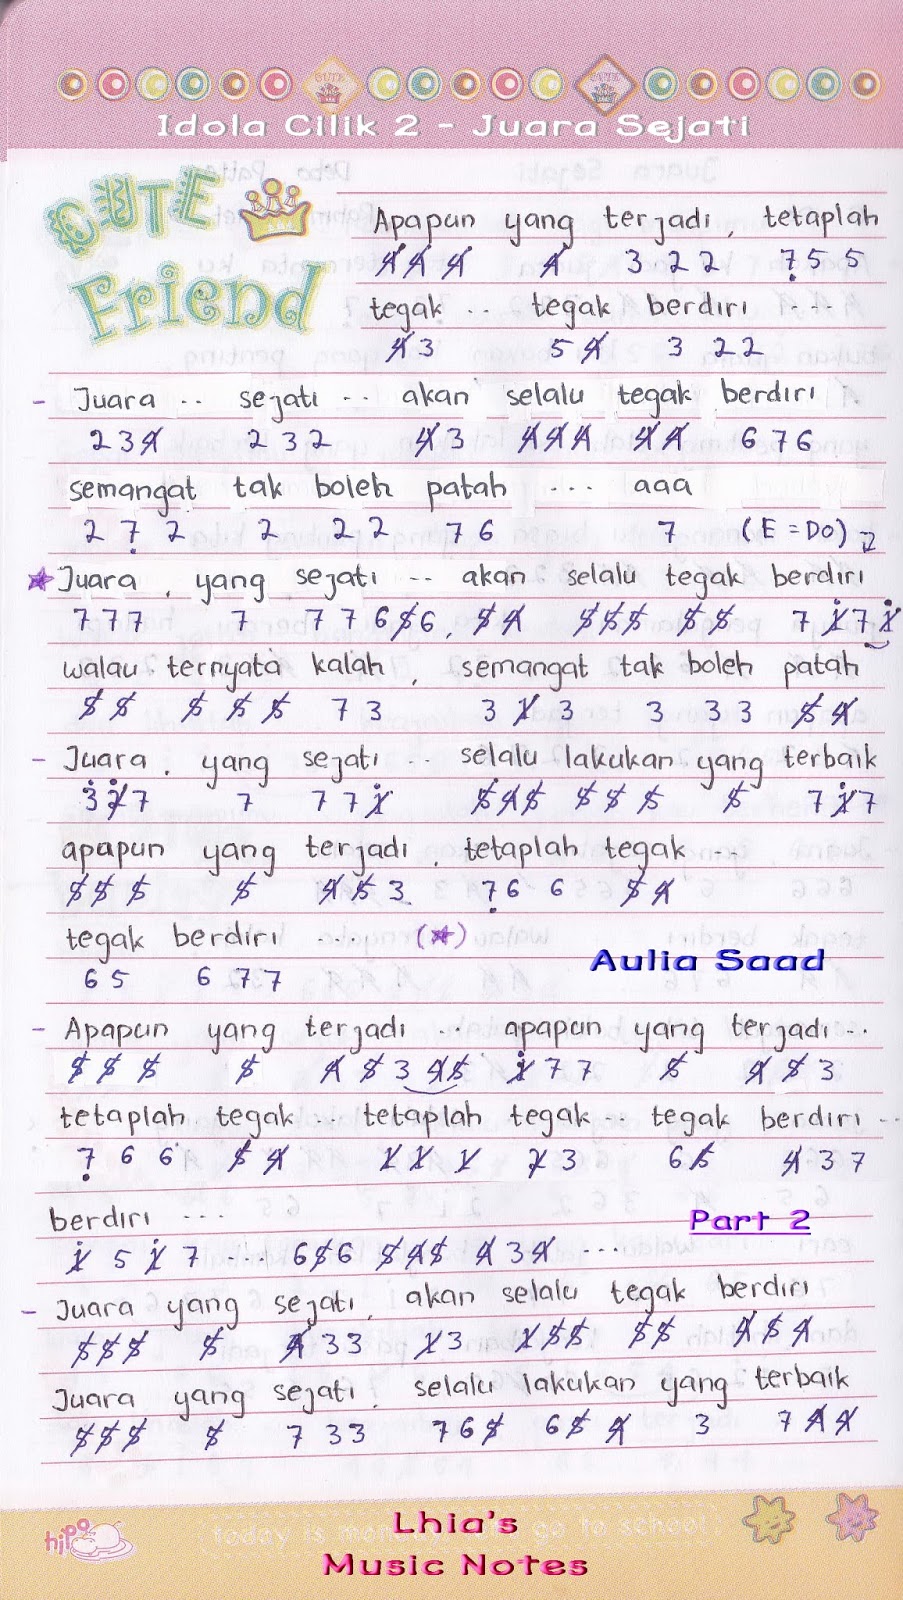 Idola Cilik 2 - Juara Sejati
CUTE Friend
Apapun yang terjadi, tetaplah
4̸ 4̸ 4̸ 4̸ 3 2 2 7̣ 5 5
tegak .. tegak berdiri ....
4̸ 3 5 4̸ 3 2 2
- Juara .. sejati .. akan selalu tegak berdiri
2 3 4̸ 2 3 2 4̸ 3 4̸ 4̸ 4̸ 4̸ 4̸ 6 7 6
semangat tak boleh patah ... aaa
2 7̣ 2 2 2 2 7 6 7 (E = DO)
★ Juara, yang sejati .. akan selalu tegak berdiri
7 7 7 7 7 7 6 5̸ 6, 5̸ 4̸ 5̸ 5̸ 5̸ 5̸ 5̸ 7 1̸̇ 7 1̸̇
walau ternyata kalah, semangat tak boleh patah
5̸ 5̸ 5̸ 5̸ 5̸ 7 3 3 1̸ 3 3 3 3 5̸ 4̸
- Juara, yang sejati .. selalu lakukan yang terbaik
3̇ 2̸̇ 7 7 7 7 1̸̇ 5̸ 4̸ 5̸ 5̸ 5̸ 5̸ 5̸ 7 1̸̇ 7
apapun yang terjadi, tetaplah tegak ..
5̸ 5̸ 5̸ 5̸ 4̸ 5̸ 3 7̣ 6 6 5̸ 4̸
tegak berdiri .... (★)
6 5 6 7 7
Aulia Saad
- Apapun yang terjadi ... apapun yang terjadi ..
5̸ 5̸ 5̸ 5̸ 4̸ 5̸ 3 4̸ 5̸ 1̸̇ 7 7 5̸ 4̸ 5̸ 3
tetaplah tegak .. tetaplah tegak .. tegak berdiri ..
7̣ 6 6 5̸ 4̸ 1̸ 1̸ 1̸ 2̸ 3 6 5̸ 4̸ 3 7
berdiri ...
Part 2
1̸̇ 5 1̸̇ 7 ... 6 5̸ 6 5̸ 4̸ 5̸ 4̸ 3 4̸ ...
- Juara yang sejati, akan selalu tegak berdiri
5̸ 5̸ 5̸ 5̸ 4̸ 3 3 1̸ 3 1̸ 5̸ 5̸ 5̸ 5̸ 4̸ 5̸ 4̸
Juara yang sejati, selalu lakukan yang terbaik
5̸ 5̸ 5̸ 5̸ 7 3 3 7 6 5̸ 6 5̸ 4̸ 3 7 4̸ 4̸
hippo
Lhia's
Music Notes